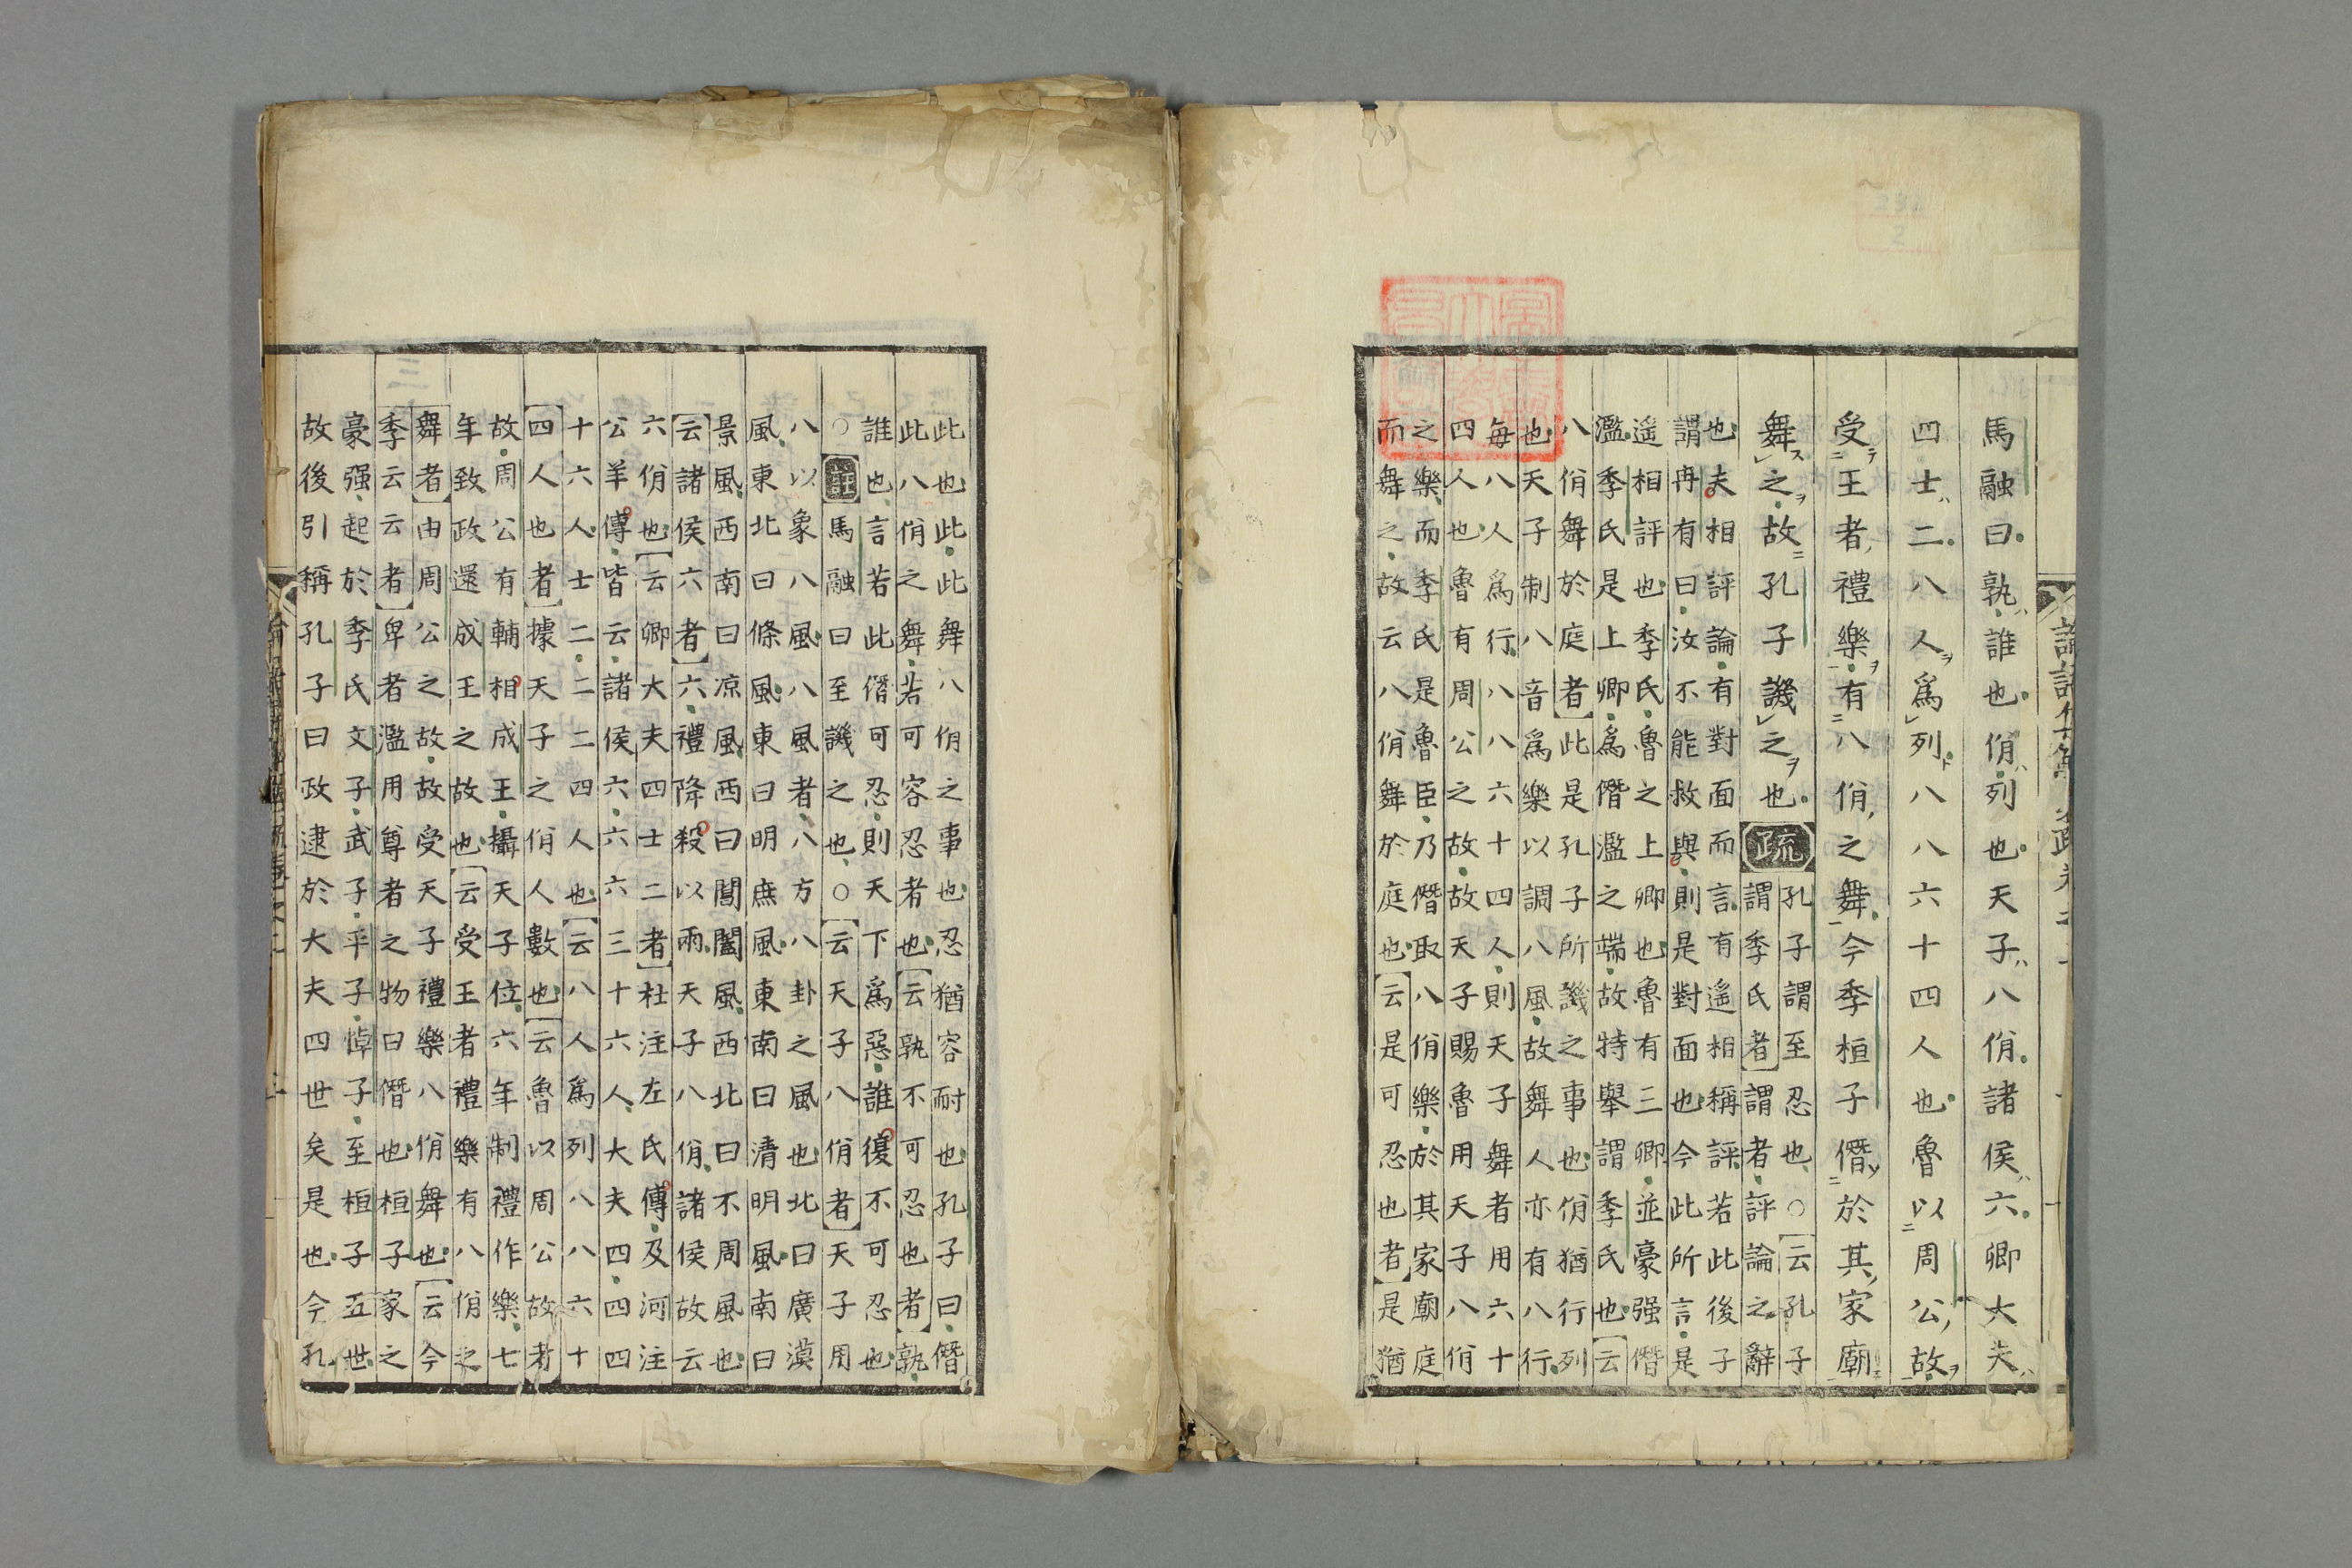 馬融曰孰誰也佾列也天子八佾諸侯六卿大夫
四士二八人爲列八八六十四人也魯以周公故
受王者禮樂有八佾之舞今季桓子僭於其家廟
舞之故孔子譏之也疏孔子謂至忍也○云孔子
謂季氏者謂者評論之辭
也夫相評論有對面而言有遙相稱評若此後子
謂冉有曰汝不能救與則是對面也今此所言是
遙相評也季氏魯之上卿也魯有三卿並豪强僭
濫季氏是上卿爲僭濫之端故特舉謂季氏也云
八佾舞於庭者此是孔子所譏之事也佾猶行列
也天子制八音爲樂以調八風故舞人亦有八行
每八人爲行八八六十四人則天子舞者用六十
四人也魯有周公之故故天子賜魯用天子八佾
之樂而季氏是魯臣乃僭取八佾樂於其家廟庭
而舞之故云八佾舞於庭也云是可忍也者是猶
此也此此舞八佾之事也忍猶容耐也孔子曰僭
此八佾之舞若可容忍者也云孰不可忍也者孰
誰也言若此僭可忍則天下爲惡誰復不可忍也
○註馬融曰至譏之也○云天子八佾者天子用
八以象八風八風者八方八卦之風也北曰廣漠
風東北曰條風東曰明庶風東南曰清明風南曰
景風西南曰凉風西曰閶闔風西北曰不周風也
云諸侯六者六禮降殺以兩天子八佾諸侯故云
六佾也云卿大夫四士二者杜注左氏傳及河注
公羊傳皆云諸侯六六六三十六人大夫四四四
十六人士二二二四人也云八人爲列八八六十
四人也者據天子之佾人數也云魯以周公故者
故周公有輔相成王攝天子位六年制禮作樂七
年致政還成王之故也云受王者禮樂有八佾之
舞者由周公之故故受天子禮樂八佾舞也云今
季云云者卑者濫用尊者之物曰僭也桓子家之
豪强起於季氏文子武子平子悼子至桓子五世
故後引稱孔子曰政逮於大夫四世矣是也今孔